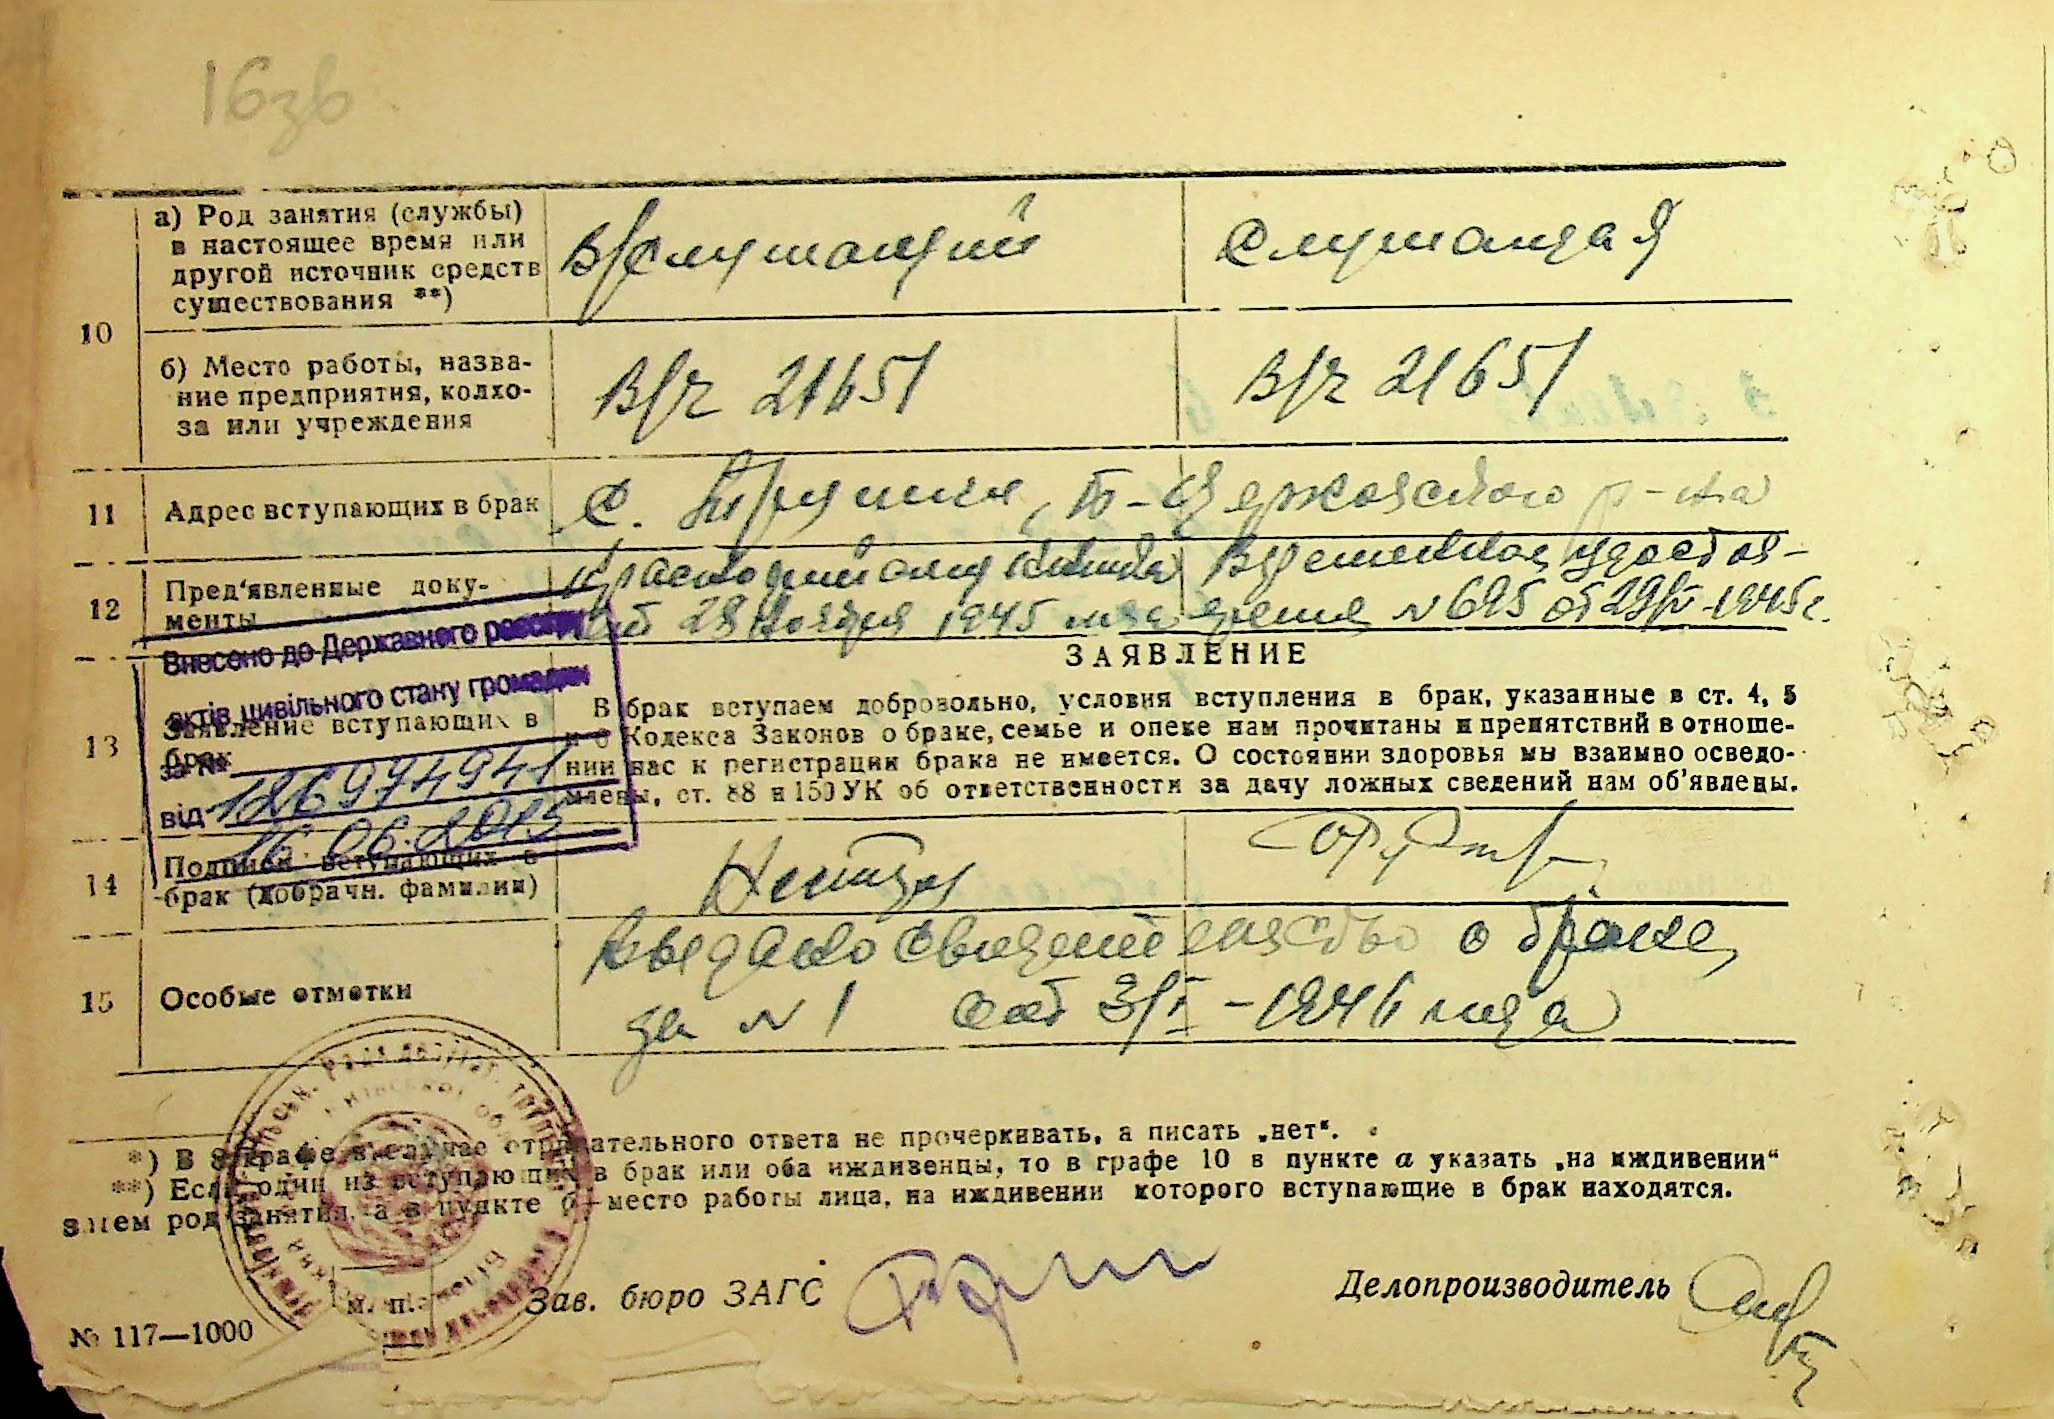 16зв
а) Род занятия (службы)
в настоящее время или
другой источник средств
существования **)
В/служащий
Служащая
10
б) Место работы, назва-
ние предприятия, колхо-
за или учреждения
В/ч 21651
В/ч 21651
11
Адрес вступающих в брак
с. Б-Церковского р-на
12
Пред'явленные доку-
менты
Красноармейская книжка
Временное удостов-
от 28 ноября 1945
ерение №695 от 29/IV-1945г.
Внесено до Державного реєстру
актів цивільного стану громадян
за №
126974941
від
16.06.2015
ЗАЯВЛЕНИЕ
13
Заявление вступающих в
брак
В брак вступаем добровольно, условия вступления в брак, указанные в ст. 4, 5
и 6 Кодекса Законов о браке, семье и опеке нам прочитаны и препятствий в отноше-
нии нас к регистрации брака не имеется. О состоянии здоровья мы взаимно осведо-
млены, ст. 88 и 150 УК об ответственности за дачу ложных сведений нам об'явлены.
14
Подписи вступающих в
брак (добрачн. фамилии)
15
Особые отметки
Выдано свидетельство о браке
за №1 от 3/I-1946 года
*) В 8 графе в случае отрицательного ответа не прочеркивать, а писать „нет“.
**) Если один из вступающих в брак или оба иждивенцы, то в графе 10 в пункте а указать „на иждивении“
затем род занятия, а в пункте б—место работы лица, на иждивении которого вступающие в брак находятся.
м. п.
Зав. бюро ЗАГС
Делопроизводитель
№ 117—1000